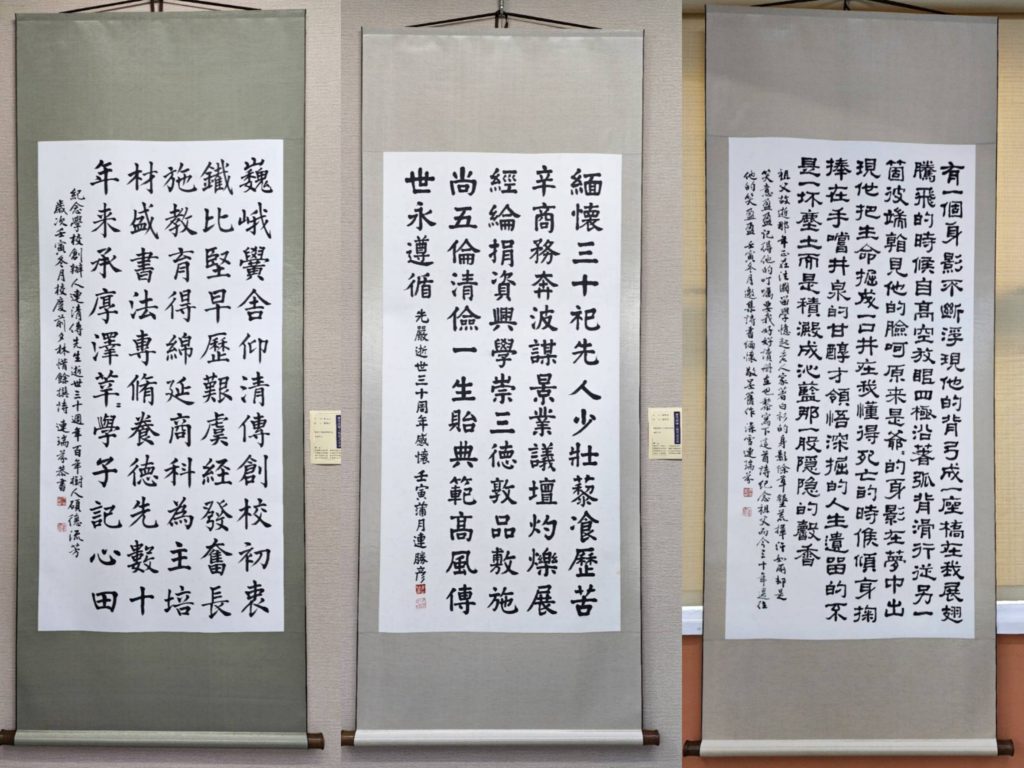 巍峨黌舍仰清傳創校初衷
鐵比堅早歷艱虞經發奮長
施教育得綿延商科為主培
材盛書法專脩養德先數十
年来承厚澤莘々學子記心田
紀念學校創辦人連清傳先生逝世三十週年百年樹人碩德流芳
歲次壬寅冬月校慶前夕林惜餘撰詩連瑞芬恭書
緬懷三十祀先人少壯藜飡歷苦
辛商務奔波謀景業議壇灼爍展
經綸捐資興學崇三德敦品敷施
尚五倫清儉一生貽典範髙風傳
世永遵循
先嚴逝世三十周年感懷 壬寅蒲月連勝彥
有一個身影不斷浮現他的背弓成一座橋在我展翅
騰飛的時候自高空放眼四極沿著弧背滑行從另一
箇彼端見他的臉呵原来是爺々的身影在夢中出
現他把生命掘成一口井在我懂得死亡的時候傾身掬
捧在手嚐井泉的甘醇才領悟深掘的人生遺留的不
是一坏塵土而是積澱成沁藍那一股隱隱的馨香
祖父故逝那年正在法國留學憶起老人家著白衫的身影都是
笑意盈盈記得他的叮囑要我好好讀冊在巴黎寫下這首詩紀念祖父而今三十年過往
他的笑盈盈 壬寅冬月邀集詩書緬懷敬墨舊作 澡雪連瑞芬